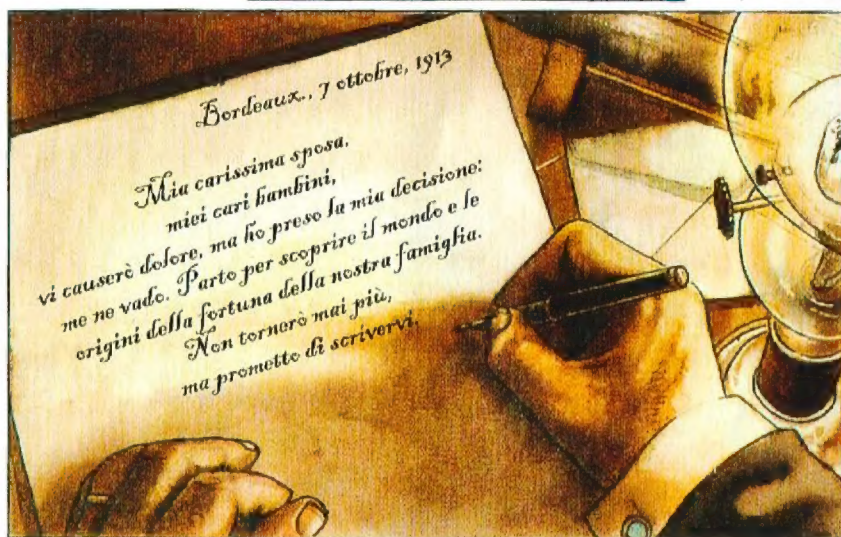 Bordeaux., 7 ottobre, 1913
Mia carissima sposa,
miei cari bambini,
vi causerò dolore, ma ho preso la mia decisione:
me ne vado. Parto per scoprire il mondo e le
origini della fortuna della nostra famiglia.
Non tornerò mai più,
ma prometto di scrivervi.